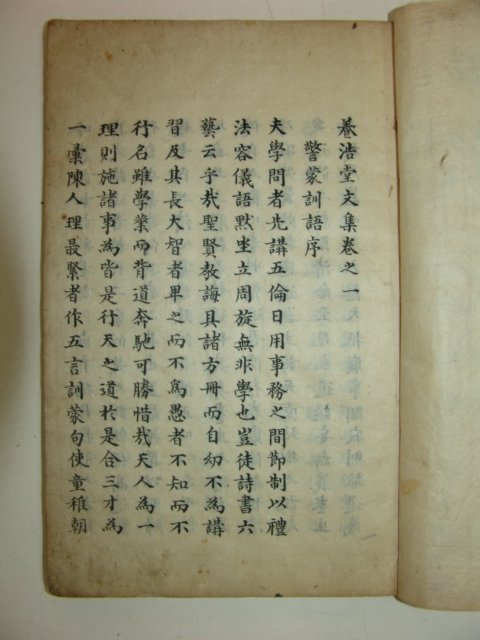 養浩堂文集卷之一
警蒙訓語序
夫學問者先講五倫日用事務之間節制以禮
法容儀語黙坐立周旋無非學也豈徒詩書六
藝云乎哉聖賢教誨具諸方冊而自幼不為講
習及其長大智者卑之而不為愚者不知而不
行名雖學業而背道奔馳可勝惜哉天人為一
理則施諸事為皆是行天之道於是合三才為
一彙陳人理最緊者作五言訓蒙句使童稚朝